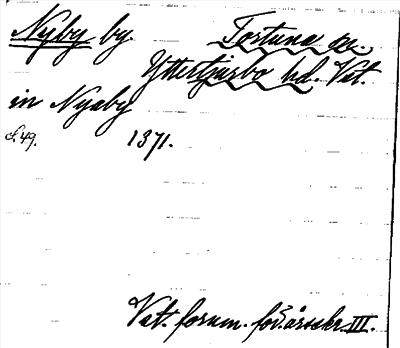 Nyby by. Tortuna sn.
Yttertjurbo hd. Vst.
in Nyaby
s. 49. 1371.
Vst. fornm. för. årsskr. III.